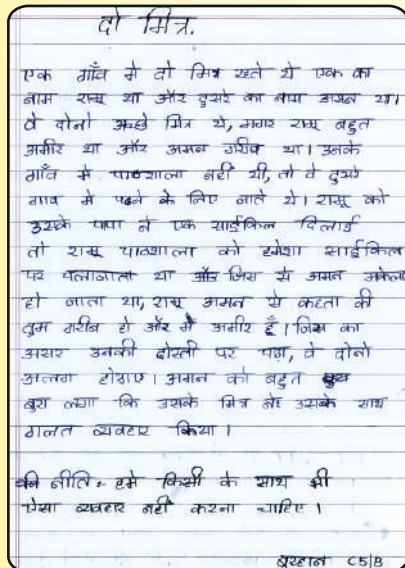 दो मित्र.
एक गाँव मे दो मित्र रहते थे एक का
नाम रामू था और दुसरे का नाम अमन था।
वे दोनो अच्छे मित्र थे, मगर रामू बहुत
अमीर था और अमन गरीब था। उनके
गाँव मे पाठशाला नही थी, तो वे दुसरे
गाव मे पढने के लिए जाते थे। रामू को
उसके पापा ने एक साईकिल दिलाई
तो रामू पाठशाला को हमेशा साईकिल
पर चलाजाता था और जिस से अमन अकेला
हो जाता था, रामू अमन से कहता की
तुम गरीब हो और मैं अमीर हूँ। जिस का
असर उनकी दोस्ती पर पड़ा, वे दोनो
अलग होगए। अमन को बहुत
बुरा लगा कि उसके मित्र ने उसके साथ
गलत व्यवहार किया।
नीति:- हमे किसी के साथ भी
ऐसा व्यवहार नही करना चाहिए।
बुरहान C5/B